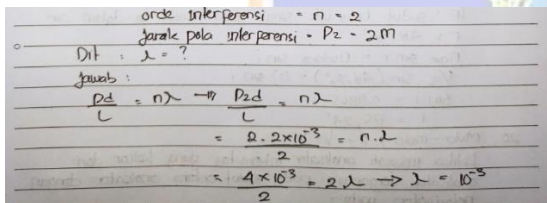 orde interferensi = n = 2
Jarak pola interferensi = P2 = 2M
Dit : λ = ?
Jawab :
Pd/L = nλ → P2d/L = nλ
= 2.2×10⁻³/2 = n.λ
= 4×10⁻³/2 = 2λ → λ = 10⁻³